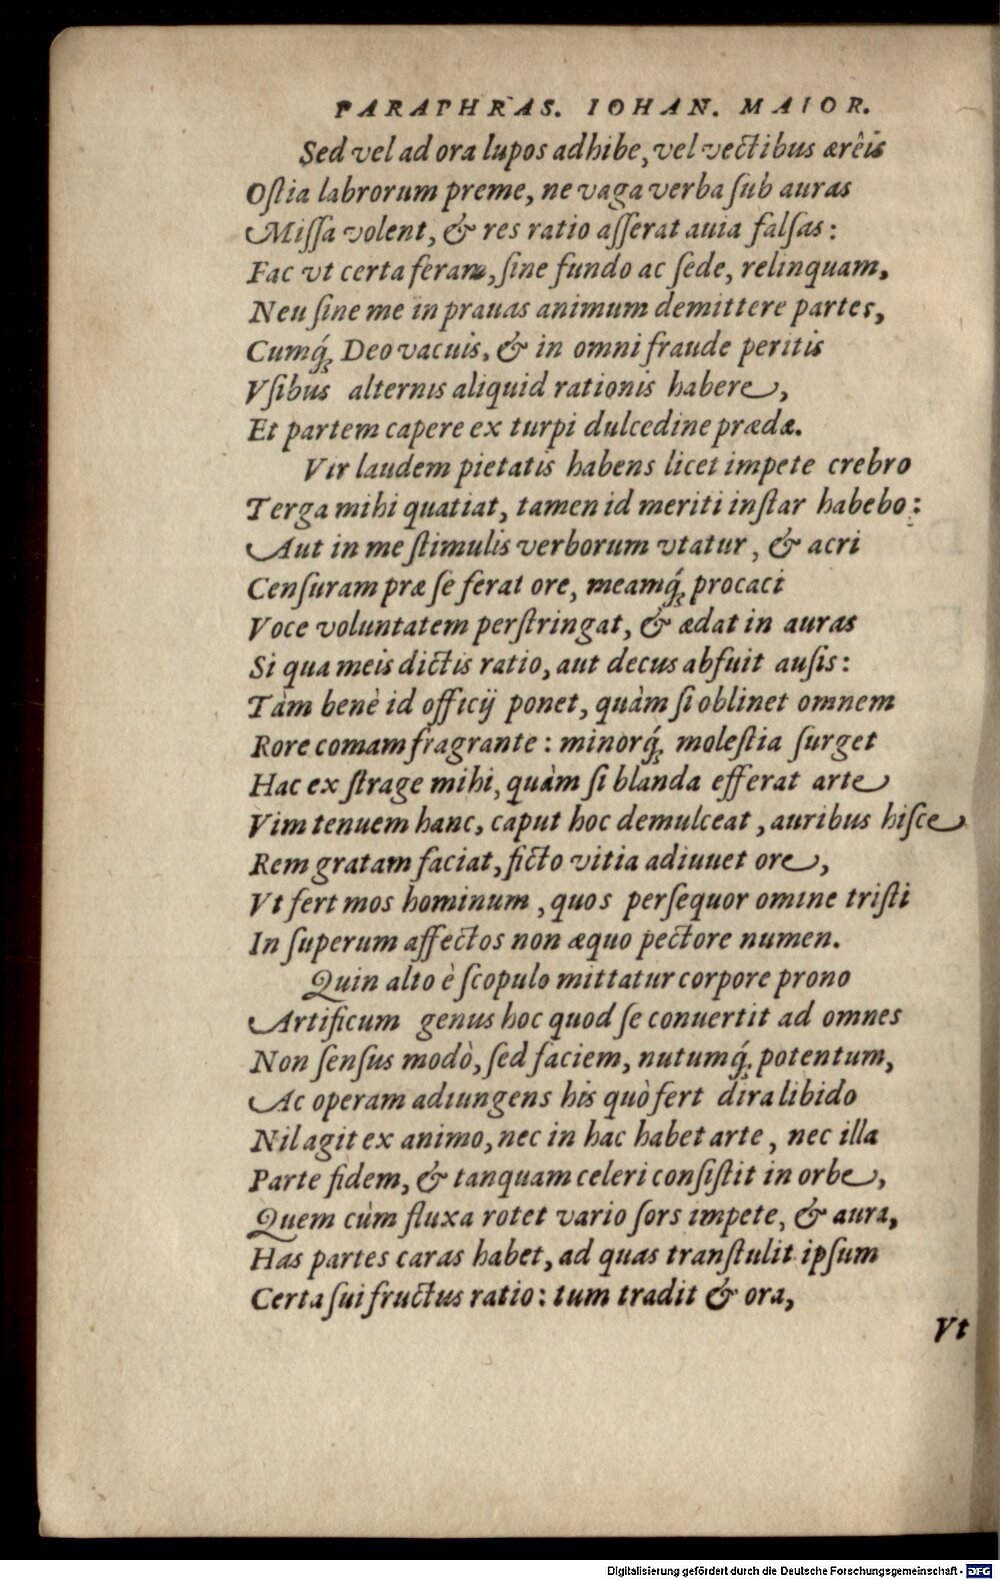 PARAPHRAS. IOHAN. MAIOR.
Sed vel ad ora lupos adhibe, vel vectibus ærêis
Oſtia labrorum preme, ne vaga verba ſub auras
Miſſa volent, & res ratio aſſerat auia falſas:
Fac vt certa feram, ſine fundo ac ſede, relinquam,
Neu ſine me in prauas animum demittere partes,
Cumq́ꝫ Deo vacuis, & in omni fraude peritis
Vſibus alternis aliquid rationis habere,
Et partem capere ex turpi dulcedine prædæ.
Vir laudem pietatis habens licet impete crebro
Terga mihi quatiat, tamen id meriti inſtar habebo:
Aut in me ſtimulis verborum vtatur, & acri
Cenſuram præ ſe ferat ore, meamq́ꝫ procaci
Voce voluntatem perſtringat, & ædat in auras
Si qua meis dictis ratio, aut decus abfuit auſis:
Tàm benè id officij ponet, quàm ſi oblinet omnem
Rore comam fragrante: minorq́ꝫ moleſtia ſurget
Hac ex ſtrage mihi, quàm ſi blanda efferat arte
Vim tenuem hanc, caput hoc demulceat, auribus hiſce
Rem gratam faciat, ficto vitia adiuuet ore,
Vt fert mos hominum, quos perſequor omine triſti
In ſuperum affectos non æquo pectore numen.
Quin alto è ſcopulo mittatur corpore prono
Artificum genus hoc quod ſe conuertit ad omnes
Non ſenſus modò, ſed faciem, nutumq́ꝫ potentum,
Ac operam adiungens his quò fert dira libido
Nil agit ex animo, nec in hac habet arte, nec illa
Parte fidem, & tanquam celeri conſiſtit in orbe,
Quem cùm fluxa rotet vario ſors impete, & aura,
Has partes caras habet, ad quas tranſtulit ipſum
Certa ſui fructus ratio: tum tradit & ora,
Vt
Digitalisierung gefördert durch die Deutsche Forschungsgemeinschaft - DFG